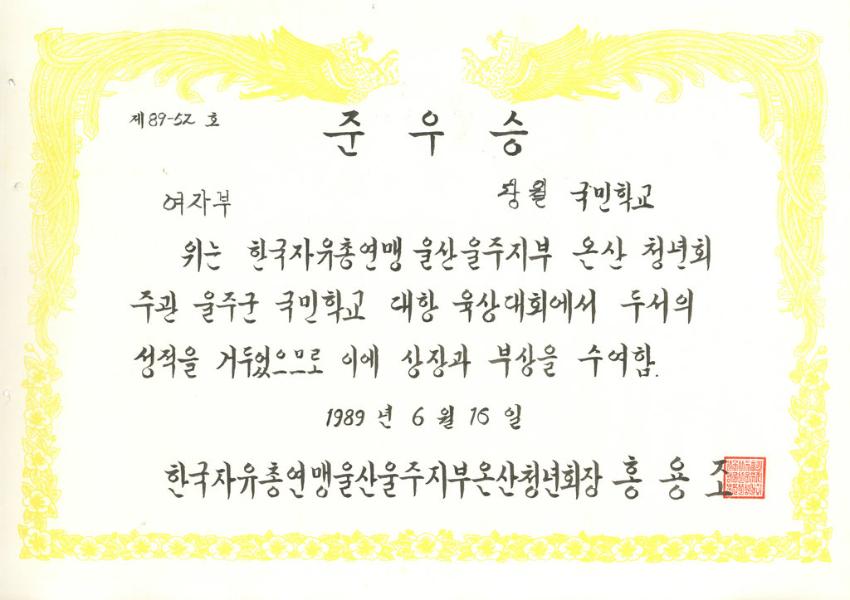 제 89-52 호
준 우 승
여자부
장월 국민학교
위는 한국자유총연맹 울산울주지부 온산 청년회
주관 울주군 국민학교 대항 육상대회에서 두서의
성적을 거두었으므로 이에 상장과 부상을 수여함.
1989 년 6 월 16 일
한국자유총연맹울산울주지부온산청년회장 홍 용 조